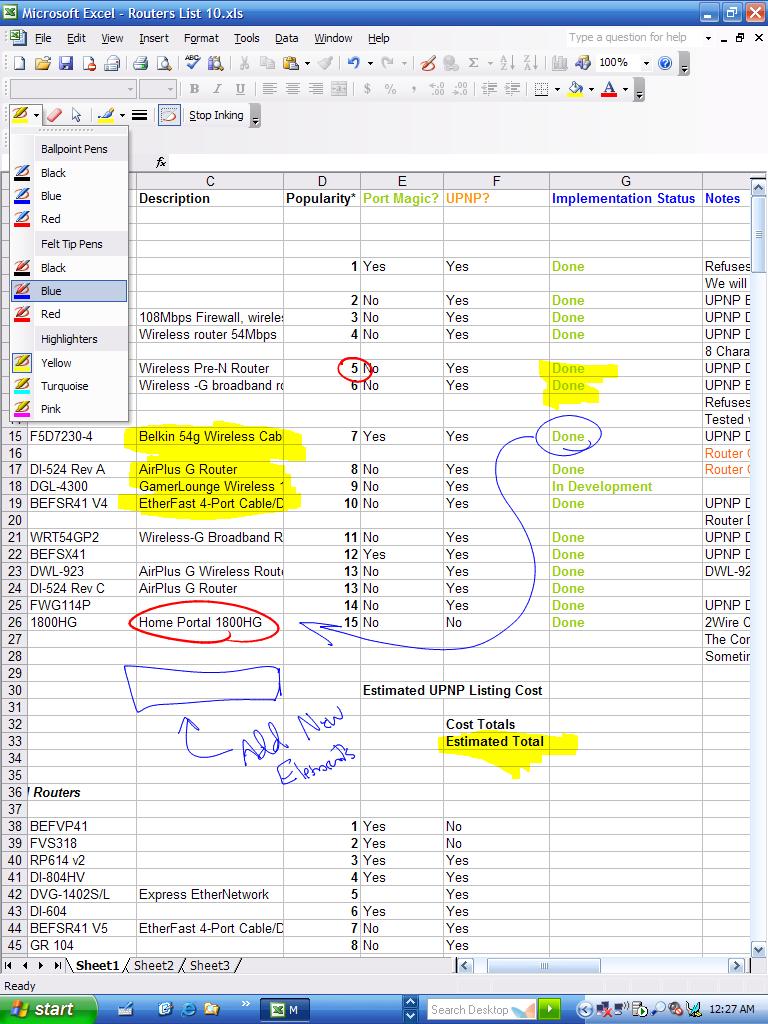 Microsoft Excel - Routers List 10.xls
File Edit View Insert Format Tools Data Window Help Type a question for help
100%
Stop Inking
Ballpoint Pens
Black
Blue
Red
Felt Tip Pens
Black
Blue
Red
Highlighters
Yellow
Turquoise
Pink
fx
C D E F G
Description Popularity* Port Magic? UPNP? Implementation Status Notes
1 Yes Yes Done Refuses
We will
2 No Yes Done UPNP
3 108Mbps Firewall, wireles 3 No Yes Done UPNP D
Wireless router 54Mbps 4 No Yes Done UPNP D
8 Chara
Wireless Pre-N Router 5 No Yes Done UPNP D
Wireless -G broadband ro 6 No Yes Done UPNP
Refuses
Tested
15 F5D7230-4 Belkin 54g Wireless Cab 7 Yes Yes Done UPNP D
16 Router
17 DI-524 Rev A AirPlus G Router 8 No Yes Done Router
18 DGL-4300 GamerLounge Wireless 9 No Yes In Development
19 BEFSR41 V4 EtherFast 4-Port Cable/D 10 No Yes Done UPNP D
20 Router D
21 WRT54GP2 Wireless-G Broadband R 11 No Yes Done UPNP D
22 BEFSX41 12 Yes Yes Done UPNP D
23 DWL-923 AirPlus G Wireless Route 13 No Yes Done DWL-92
24 DI-524 Rev C AirPlus G Router 13 No Yes Done
25 FWG114P 14 No Yes Done UPNP D
26 1800HG Home Portal 1800HG 15 No No Done 2Wire
27 The Cor
28 Sometin
29
30 Estimated UPNP Listing Cost
31
32 Cost Totals
33 Estimated Total
34
Add New
Elements
35
36 Routers
37
38 BEFVP41 1 Yes No
39 FVS318 2 Yes No
40 RP614 v2 3 Yes Yes
41 DI-804HV 4 Yes Yes
42 DVG-1402S/L Express EtherNetwork 5 Yes
43 DI-604 6 Yes Yes
44 BEFSR41 V5 EtherFast 4-Port Cable/D 7 No Yes
45 GR 104 8 No Yes
Sheet1 Sheet2 Sheet3
Ready
start M Search Desktop 12:27 AM